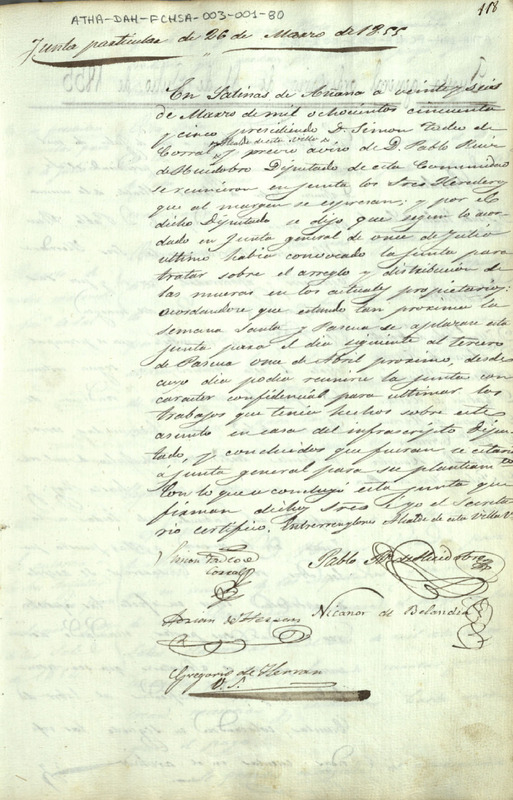 118
ATHA-DAH-FCHSA-003-001-80
Junta particular de 26 de Marzo de 1855
En Salinas de Añana a veinte y seis
de Marzo de mil ochocientos cincuenta
y cinco presidiendo D. Simon Tadeo de
Corral, Alcalde de esta Villa y previo aviso de D. Pablo Ruiz
de Huidobro Diputado de esta Comunidad
se reunieron en junta los Sres Herederos
que al margen se expresan; y por el
dicho Diputado se dijo, que segun lo acor-
dado en Junta general de once de Julio
ultimo habia convocado la junta para
tratar sobre el arreglo y distribucion de
las mueras en los actuales propietarios:
acordandose que estando tan proxima la
semana Santa y Pascua se aplazase esta
junta para el dia siguiente al tercero
de Pascua once de Abril proximo, desde
cuyo dia podia reunirse la junta con
caracter confidencial para ultimar los
trabajos que tenia hechos sobre este
asunto en casa del infrascripto Dipu-
tado, y concluidos que fueran se citaria
a junta general para su planteam.to
Con lo que se concluyó esta junta que
firman dichos Sres y yo el Secreta-
rio certifico. Entrerrenglones Alcalde de esta Villa V.
Simon Tadeo de
Corral
Pablo R. de Huidobro
de Herran
Nicanor de Belandia
Gregorio de Herran
V. S.